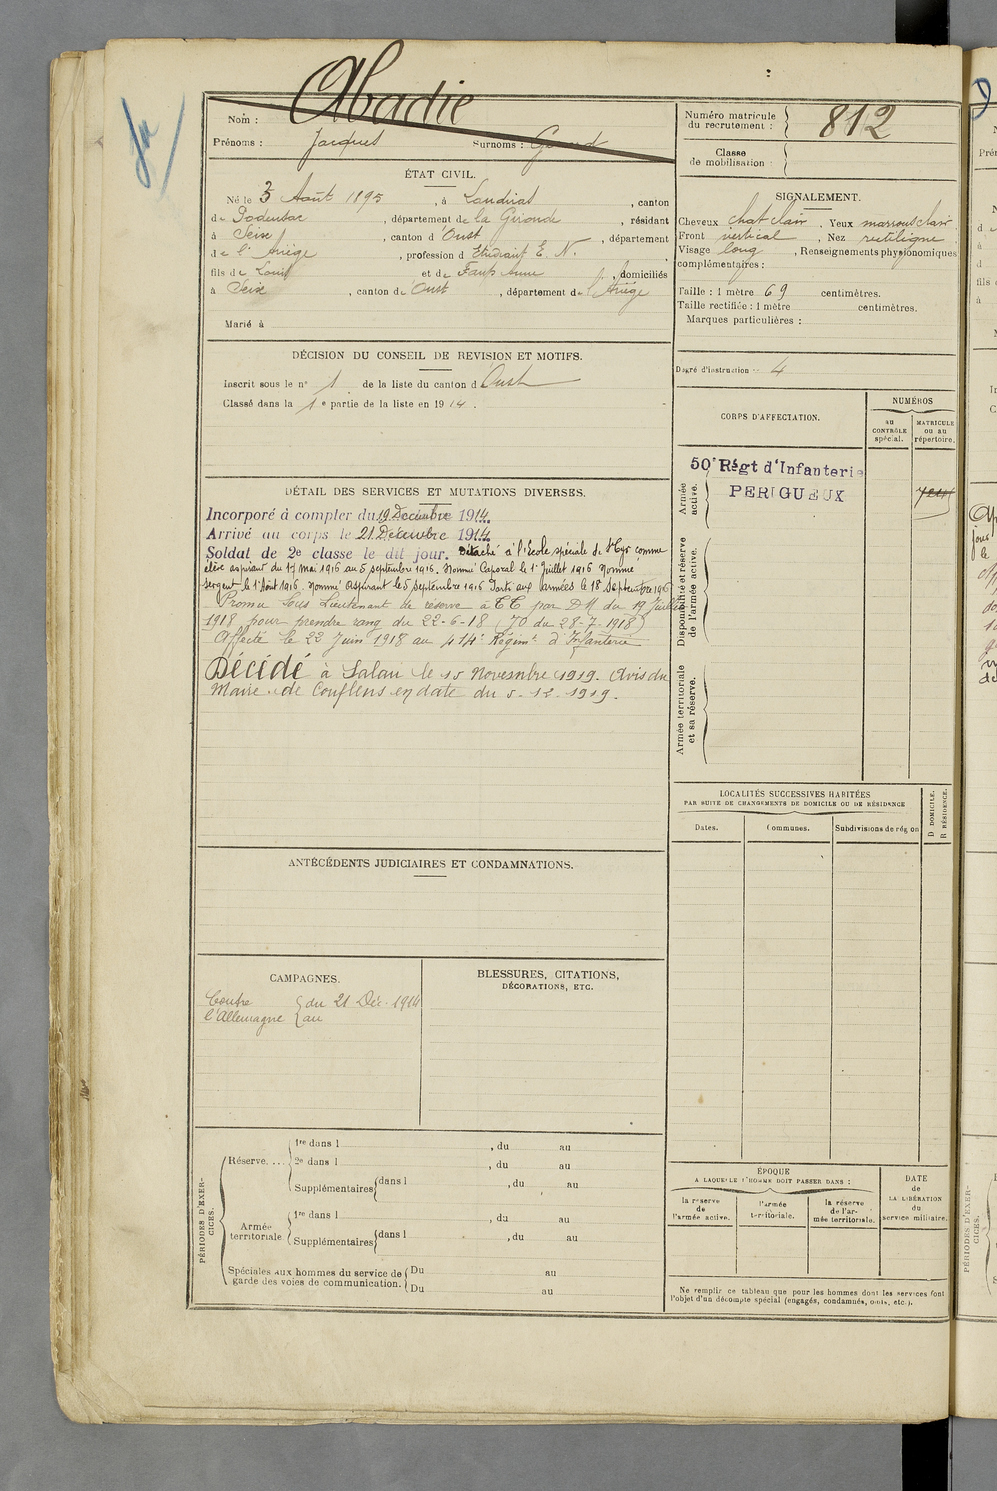 Abadie
Nom :
Prénoms : Jacques Surnoms :
Numéro matricule du recrutement : 812
Classe de mobilisation :
ÉTAT CIVIL.
Né le 3 Août 1895, à Landiras, canton
de Podensac, département de la Gironde, résidant
à Seix, canton d'Oust, département
de l'Ariège, profession d Etudiant E. N.
fils de Louis et de Faup Anne, domiciliés
à Seix, canton de Oust, département de l'Ariège
Marié à
SIGNALEMENT.
Cheveux chat clair, Yeux marrons clair
Front vertical, Nez rectiligne
Visage long, Renseignements physionomiques
complémentaires :
Taille : 1 mètre 69 centimètres.
Taille rectifiée : 1 mètre centimètres.
Marques particulières :
Degré d'instruction 4
DÉCISION DU CONSEIL DE REVISION ET MOTIFS.
Inscrit sous le n° 1 de la liste du canton d Oust
Classé dans la 1e partie de la liste en 1914.
CORPS D'AFFECTATION.
NUMÉROS
au CONTRÔLE spécial.
MATRICULE ou au répertoire.
Armée active.
50e Régt d'Infanterie
PERIGUEUX
Disponibilité et réserve de l'armée active.
Armée territoriale et sa réserve.
DÉTAIL DES SERVICES ET MUTATIONS DIVERSES.
Incorporé à compter du 19 Décembre 1914.
Arrivé au corps le 21 Décembre 1914
Soldat de 2e classe le dit jour. Détaché à l'Ecole spéciale de St Cyr comme
élève aspirant du 17 mai 1916 au 5 septembre 1916. Nommé Caporal le 1er juillet 1916 Nommé
Sergent le 1er Août 1916. Nommé Aspirant le 5 septembre 1916 Parti aux armées le 18 Septembre 1916
Promu Sous Lieutenant de réserve à TT par DM du 19 Juillet
1918 pour prendre rang du 22-6-18 (JO du 28-7-1918)
Affecté le 22 Juin 1918 au 414e Régimt d'Infanterie
Décédé à Salau le 15 Novembre 1919. Avis du
Maire de Couflens en date du 5-12-1919.
LOCALITÉS SUCCESSIVES HABITÉES
PAR SUITE DE CHANGEMENTS DE DOMICILE OU DE RÉSIDENCE
Dates. Communes. Subdivisions de région
D DOMICILE.
R RÉSIDENCE.
ANTÉCÉDENTS JUDICIAIRES ET CONDAMNATIONS.
CAMPAGNES.
Contre du 21 Déc. 1914
l'Allemagne au
BLESSURES, CITATIONS,
DÉCORATIONS, ETC.
PÉRIODES D'EXERCICES.
Réserve. ... 1re dans l , du au
2e dans l , du au
Supplémentaires dans l , du au
Armée territoriale 1re dans l , du au
Supplémentaires dans l , du au
Spéciales aux hommes du service de garde des voies de communication. Du au
Du au
ÉPOQUE
A LAQUELLE L'HOMME DOIT PASSER DANS :
la réserve de l'armée active.
l'armée territoriale.
la réserve de l'armée territoriale.
DATE de LA LIBÉRATION du service militaire.
Ne remplir ce tableau que pour les hommes dont les services font
l'objet d'un décompte spécial (engagés, condamnés, omis, etc.).